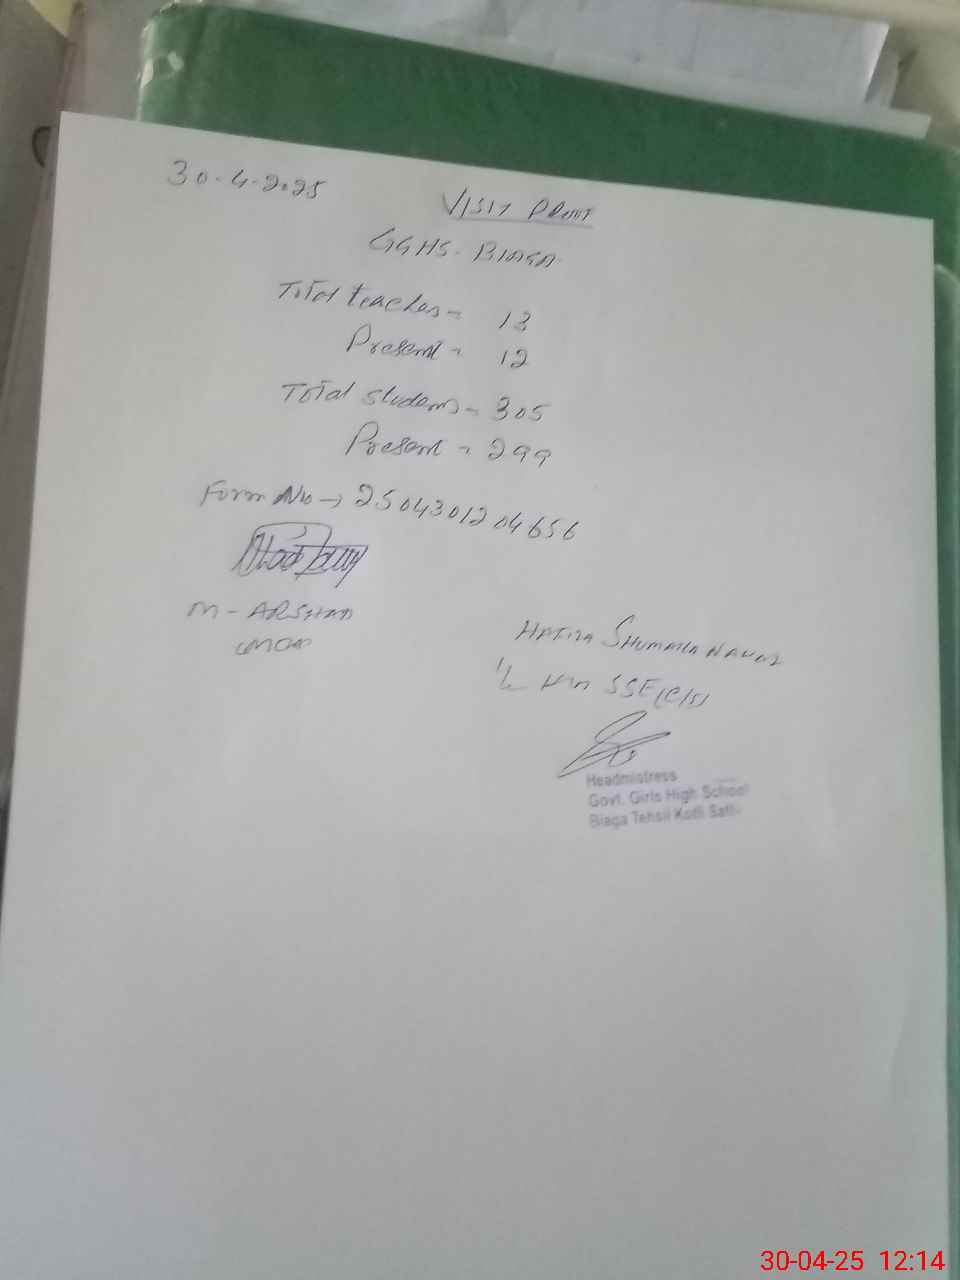 30-4-2025
VISIT PROOF
GGHS- BIAGA
Total teaches = 13
Present = 12
Total students = 305
Present = 299
Form No → 2504301204656
M- ARSHAD
SHUMAILA NAWAZ
I/C HM SSE (C/S)
Headmistress
Govt. Girls High School
Biaga Tehsil Kotli Satti
30-04-25 12:14